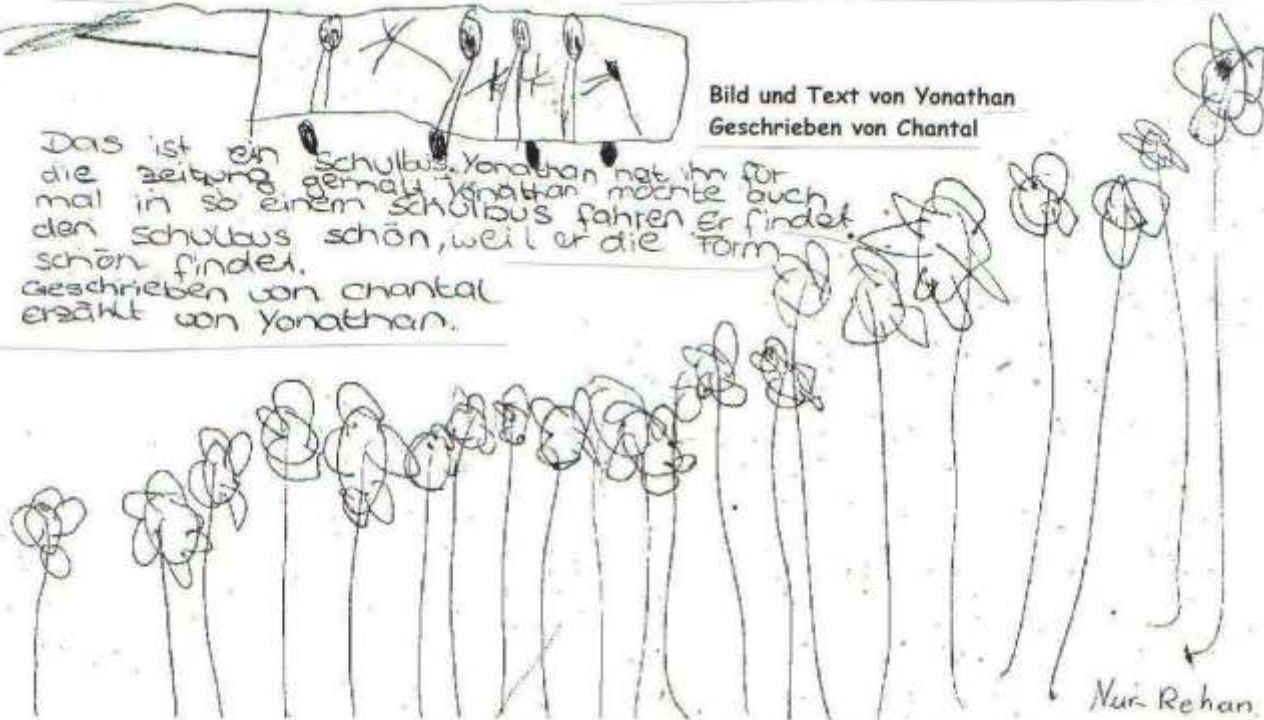 Bild und Text von Yonathan
Geschrieben von Chantal
Das ist ein Schulbus. Yonathan hat ihn für
die Zeitung gemalt. Yonathan möchte auch
mal in so einem Schulbus fahren. Er findet
den Schulbus schön, weil er die Form
schön findet.
Geschrieben von Chantal
erzählt von Yonathan.
Nur Rehan